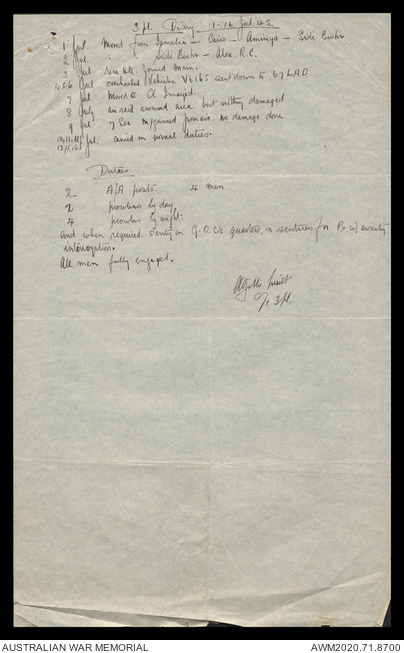 3 Pl. Diary 1-16 Jul. 42
1 Jul Moved from Ismalia - Cairo - Amiriya - Sidi Bishr
2 Jul " Sidi Bishr - Alex. R.C.
3 Jul Joined Main.
4.5.6 Jul overhauled Vehicles V6165 sent down to 67 L.A.D
7 Jul Moved to El Imayed.
8 July air raid around area. but nothing damaged
9 Jul 7 Sec M/gunned from air. no damage done
10/11/12/ Jul. carried on normal duties.
13/15/16
Duties
2. A/A posts. 4 men
2 prowlers by day
4 prowlers by night.
And when required Sentry on G.O.C's quarters, & sentries for Ps.o.W. awaiting
interrogation.
All men fully engaged.
Lieut
O/c 3 Pl.
AUSTRALIAN WAR MEMORIAL
AWM2020.71.8700